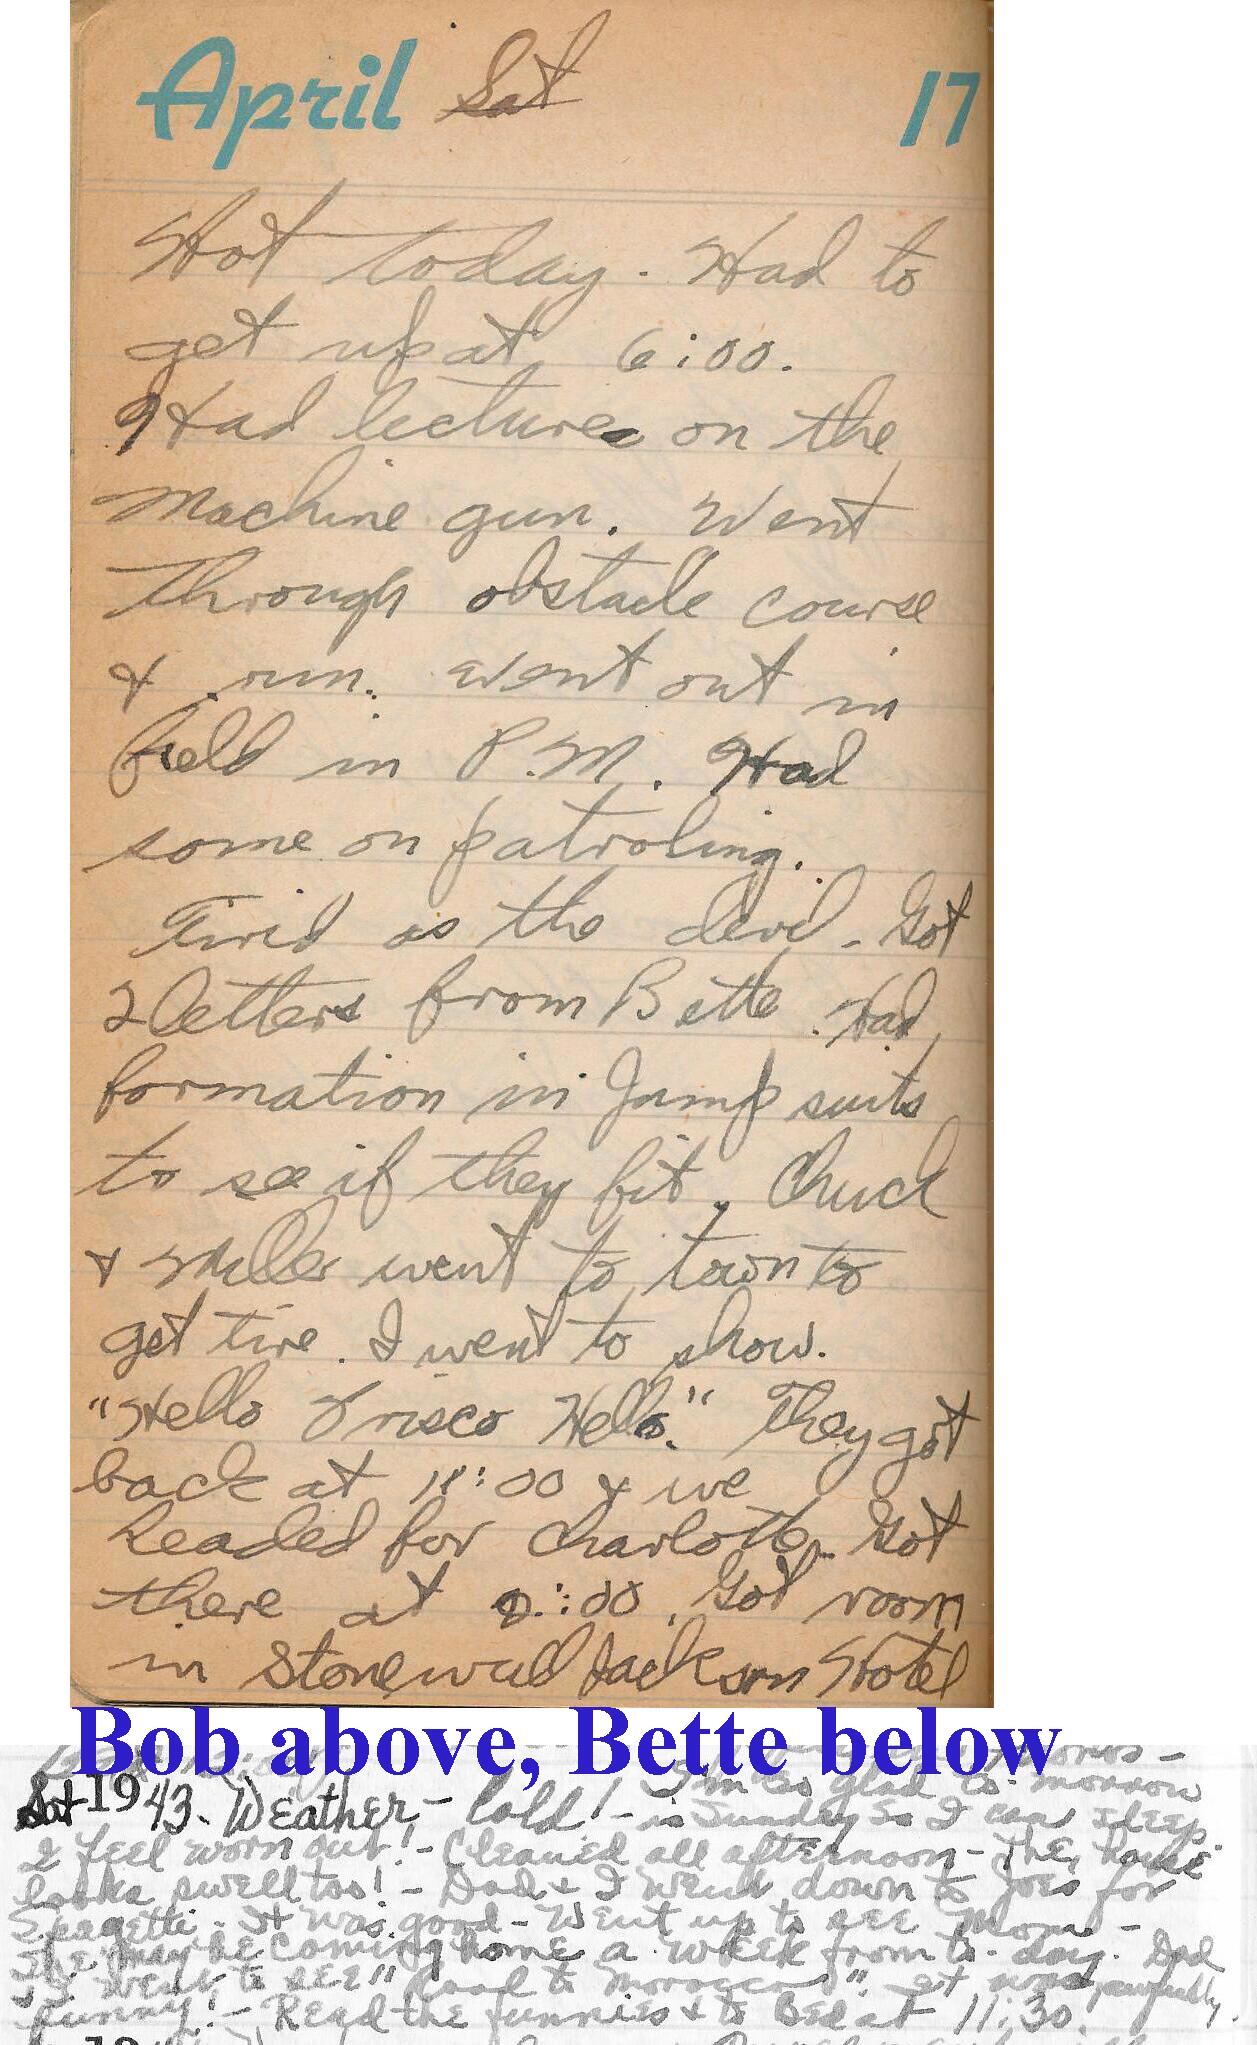 April Sat 17
Hot today. Had to
get up at 6:00.
Had lectures on the
machine gun. Went
through obstacle course
& run. Went out in
field in P.M. Had
some on patroling.
Tired as the devil. Got
2 letters from Bette. Had
formation in Jump suits
to see if they fit. Chuck
& Miller went to town to
get tire. I went to show.
"Hello Frisco Hello." They got
back at 11:00 & we
headed for Charlotte. Got
there at :00. Got room
in Stonewall Jackson Hotel
Bob above, Bette below
I'm so glad to-morrow
Sat 1943. Weather - Cold! - is Sunday so I can sleep.
I feel worn out! - Cleaned all afternoon - The house
looks swell too! - Dad & I went down to Joes for
Spagetti - It was good - Went up to see Mom -
She may be coming home a week from to-day. Dad
& I went to see "Road to Morocco". It was awfully
funny! - Read the funnies & to Bed at 11:30.